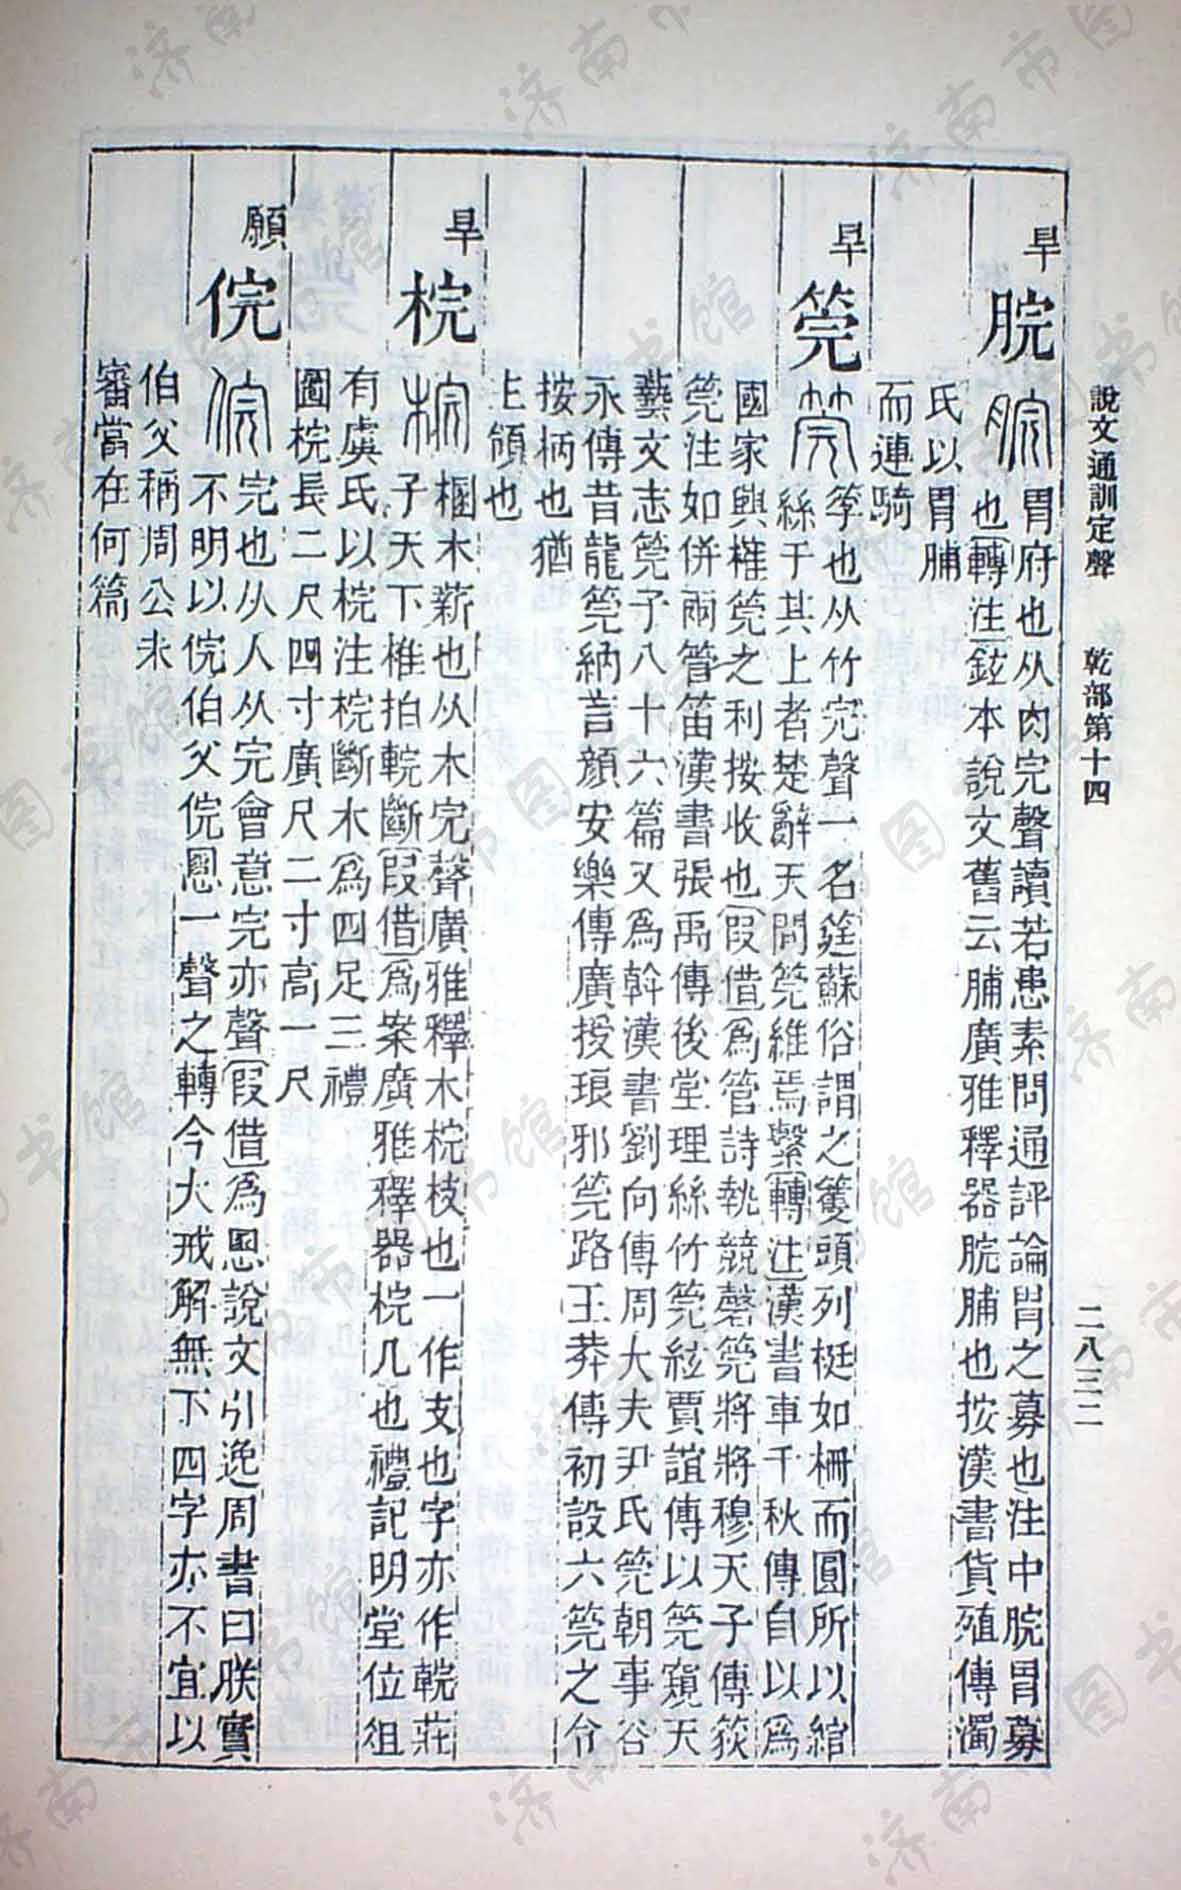 說文通訓定聲 乾部第十四 二八三二
旱
脘 脘 胃府也从肉完聲讀若患素問通評論胃之募也注中脘胃募
也轉注鉉本說文舊云脯廣雅釋器脘脯也按漢書貨殖傳濁
氏以胃脯
而連騎
旱
筦 筦 筟也从竹完聲一名筳蘇俗謂之籆頭列梃如柵而圓所以綰
絲于其上者楚辭天問筦維焉繫轉注漢書車千秋傳自以爲
國家興榷筦之利按收也假借爲管詩執競磬筦將將穆天子傳荻
筦注如併兩管笛漢書張禹傳後堂理絲竹筦絃賈誼傳以筦窺天
藝文志筦子八十六篇又爲斡漢書劉向傳周大夫尹氏筦朝事谷
永傳昔龍筦納言顏安樂傳廣授琅邪筦路王莽傳初設六筦之令
按柄也猶
主領也
旱
梡 梡 梱木薪也从木完聲廣雅釋木梡枝也一作支也字亦作輐莊
子天下椎拍輐斷假借爲案廣雅釋器梡几也禮記明堂位俎
有虞氏以梡注梡斷木爲四足三禮
圖梡長二尺四寸廣尺二寸高一尺
願
俒 俒 完也从人从完會意完亦聲假借爲慁說文引逸周書曰朕實
不明以俒伯父俒慁一聲之轉今大戒解無下四字亦不宜以
伯父稱周公未
審當在何篇